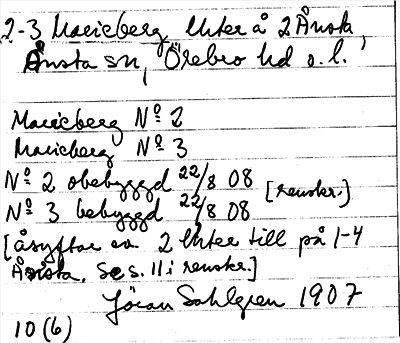 2-3 Marieberg Uter å 2 Ånsta,
Ånsta sn, Örebro hd o.l.
Marieberg Nº 2
Marieberg Nº 3
Nº 2 obebyggd 22/8 08
Nº 3 bebyggd 22/8 08 [renskr.]
[åsyftar ev. 2 Uter till på 1-4
Ånsta. Se s. 11 i renskr.]
Jöran Sahlgren 1907
10(6)